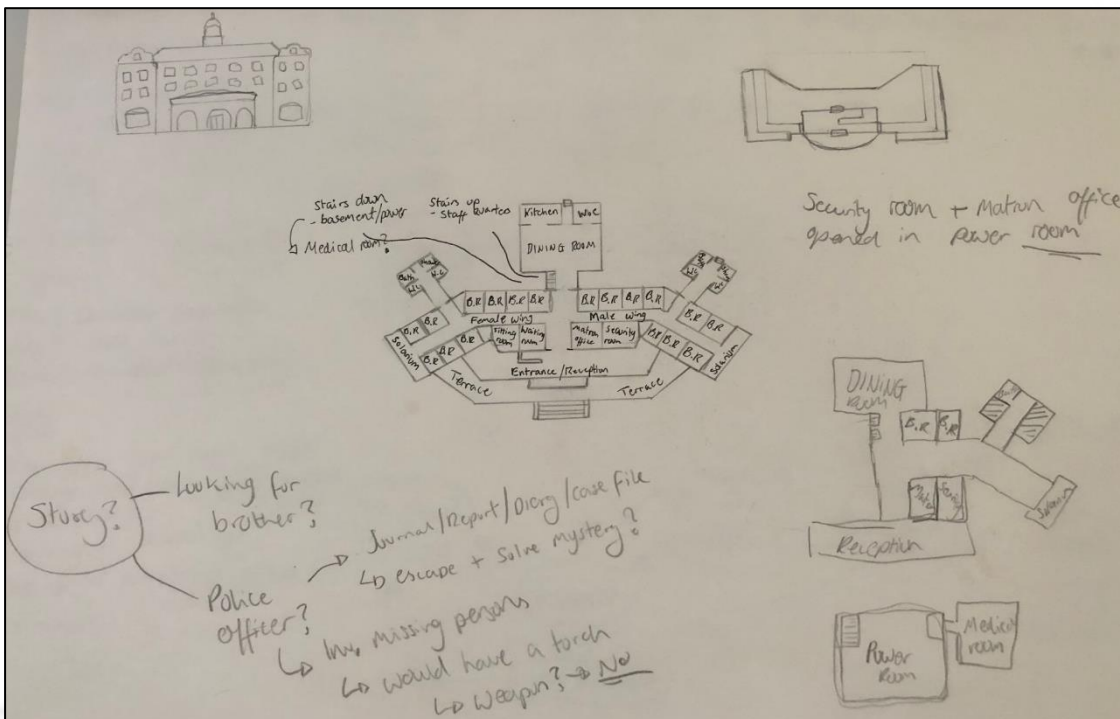 Stairs down
- basement/power
↳ Medical room?
Stairs up
- Staff quarters
Kitchen
W.C
DINING ROOM
Bath
W.C
W.C
B.R B.R B.R B.R
B.R B.R B.R B.R
Female wing
Male wing
B.R B.R
B.R B.R
Solarium
B.R B.R B.R
Fitting room
Waiting room
Matron office
Security room
B.R B.R B.R
Solarium
Entrance/Reception
Terrace
Terrace
Security room + Matron office
opened in power room
DINING
room
B.R B.R
Solarium
Reception
Power
Room
Medical
room
Story?
Looking for
brother?
Police
officer?
→ Journal/Report/Diary/case file
↳ escape + Solve mystery?
↳ Inv. missing persons
↳ would have a torch
↳ weapon? → No